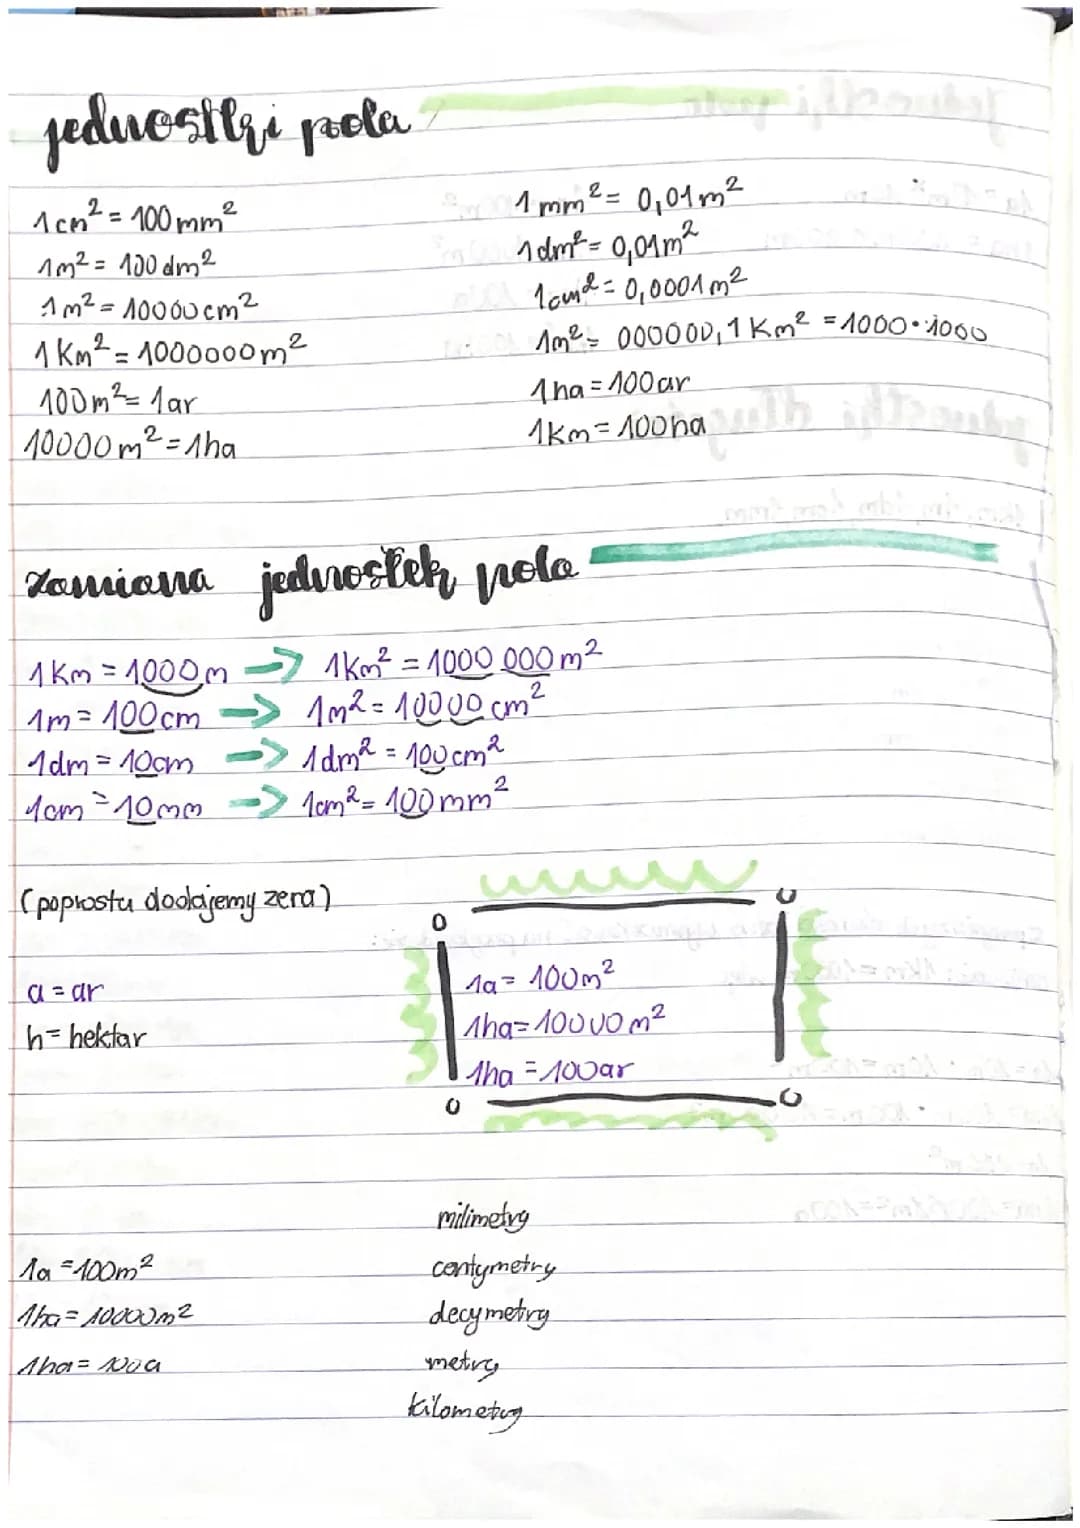 jednostki pola
1cm² = 100mm²
1m² = 100dm²
1m² = 10000cm²
1Km² = 1000000m²
100m² = 1ar
10000m² = 1ha
1mm² = 0,01m²
1dm² = 0,01m²
1cm² = 0,0001m²
1m² = 000000,1Km² = 1000·1000
1ha = 100ar
1Km = 100ha
zamiana jednostek pola
1Km = 1000m -> 1Km² = 1000 000m²
1m = 100cm -> 1m² = 10000cm²
1dm = 10cm -> 1dm² = 100cm²
1cm = 10mm -> 1cm² = 100mm²
(poprostu dodajemy zera)
a = ar
h = hektar
1a = 100m²
1ha = 10000m²
1ha = 100ar
1a = 100m²
1ha = 10000m²
1ha = 100a
milimetry
centymetry
decymetry
metry
kilometry